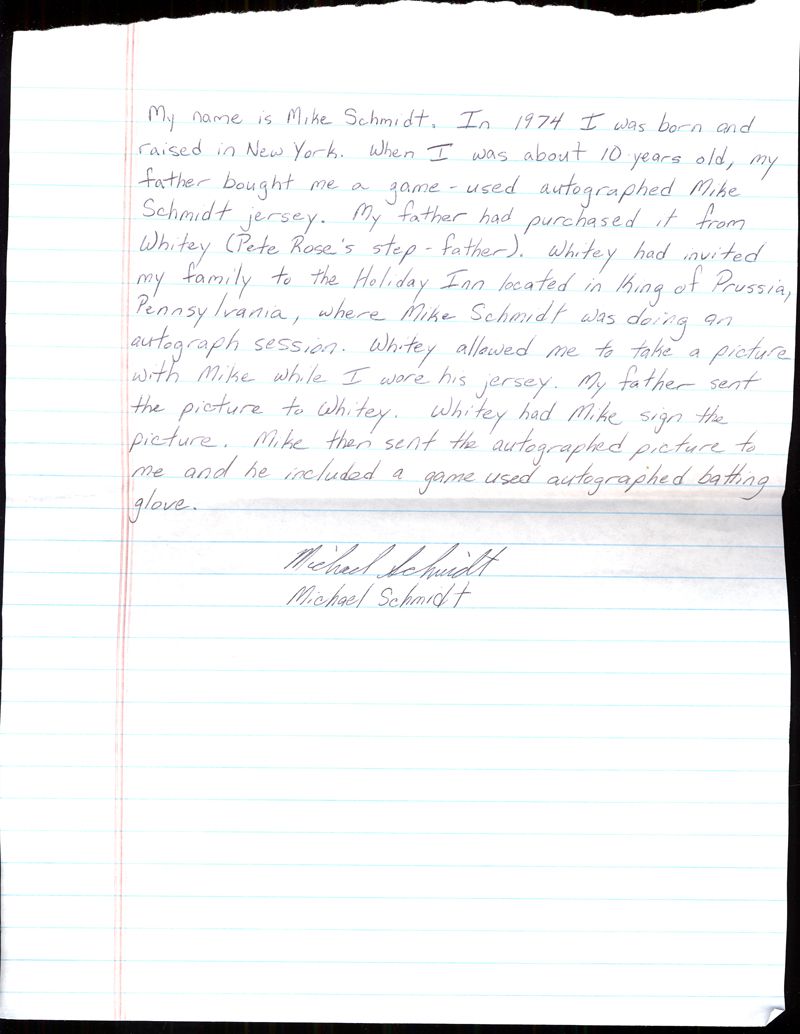 My name is Mike Schmidt. In 1974 I was born and
raised in New York. When I was about 10 years old, my
father bought me a game-used autographed Mike
Schmidt jersey. My father had purchased it from
Whitey (Pete Rose's step-father). Whitey had invited
my family to the Holiday Inn located in King of Prussia,
Pennsylvania, where Mike Schmidt was doing an
autograph session. Whitey allowed me to take a picture
with Mike while I wore his jersey. My father sent
the picture to Whitey. Whitey had Mike sign the
picture. Mike then sent the autographed picture to
me and he included a game used autographed batting
glove.
Michael Schmidt
Michael Schmidt